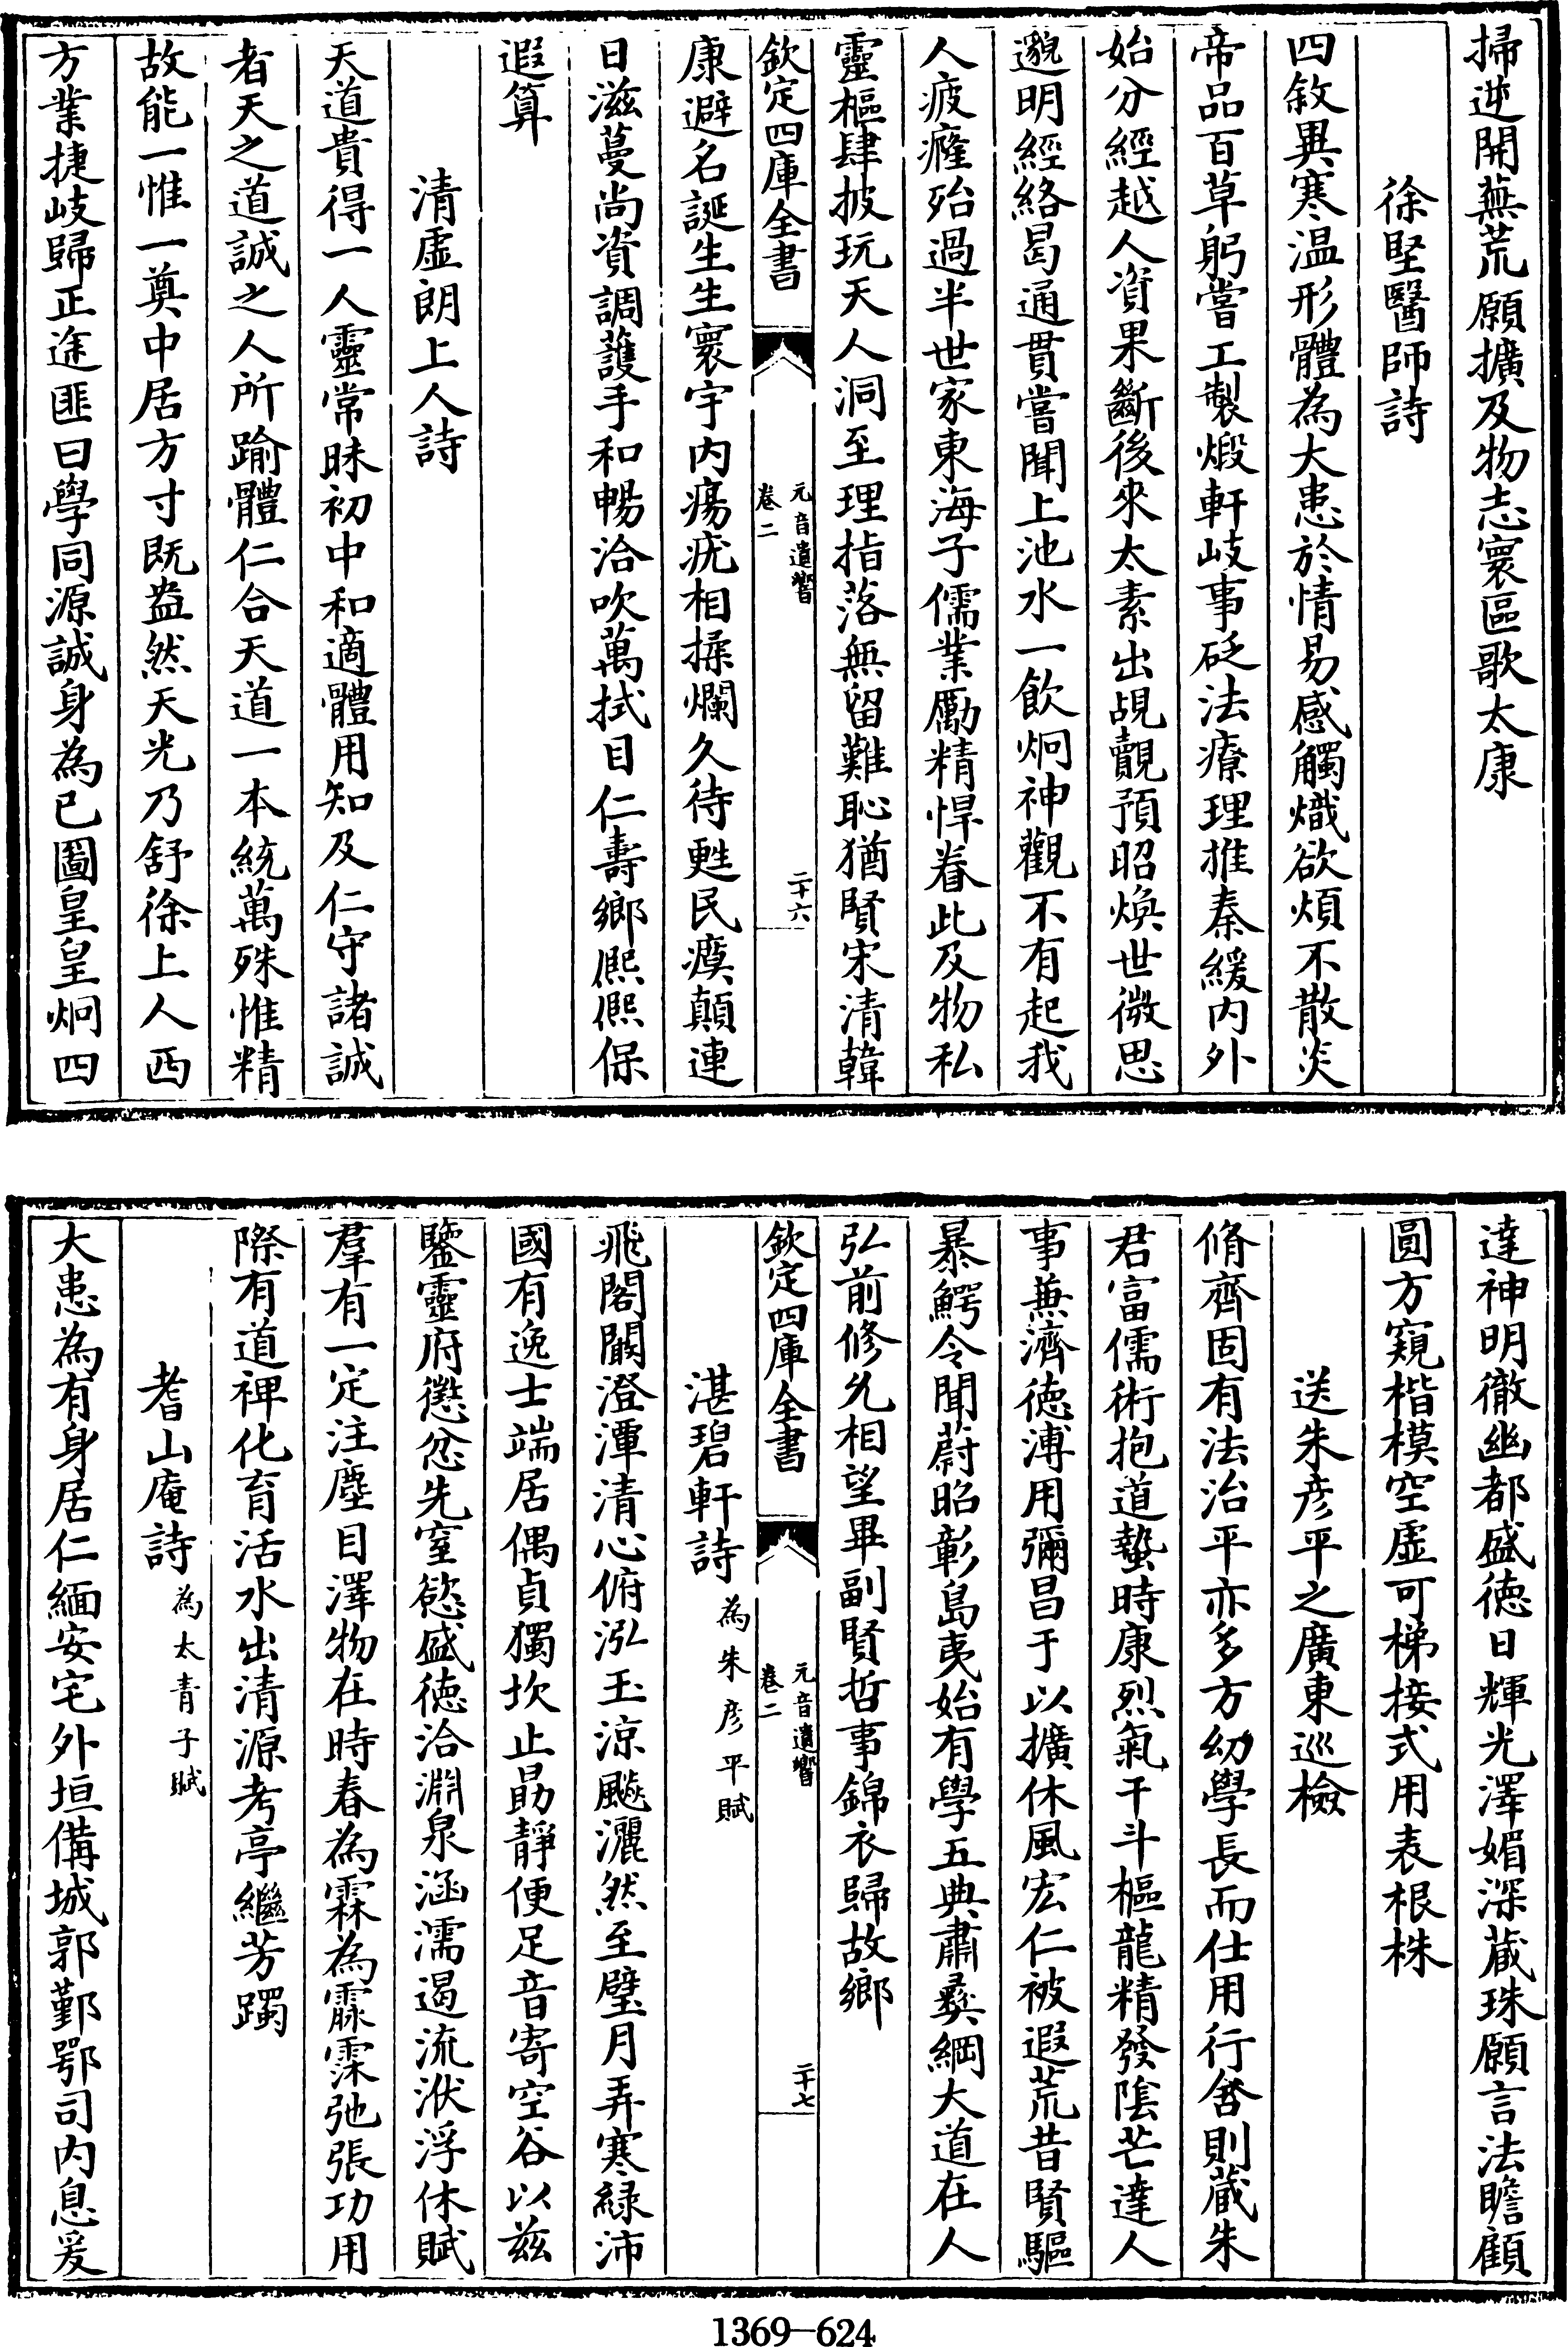 掃逆開蕪荒願擴及物志寰區歌太康
徐堅醫師詩
四敘異寒温形體為大患於情易感觸熾欲煩不散炎
帝品百草躬嘗工製煅軒岐事砭法療理推秦緩內外
始分經越人資果斷後來太素出覘覿預昭煥世微思
邈明經絡曷通貫嘗聞上池水一飲炯神觀不有起我
人疲癃殆過半世家東海子儒業勵精悍眷此及物私
靈樞肆披玩天人洞至理指落無留難恥猶賢宋清韓
欽定四庫全書
元音遺響
卷二
二十六
康避名誕生生寰宇内瘍疣相揉爛久待甦民瘼顛連
日滋蔓尚資調護手和暢洽吹萬拭目仁壽鄉熈熈保
遐算
清虛朗上人詩
天道貴得一人靈常昧初中和適體用知及仁守諸誠
者天之道誠之人所踰體仁合天道一本統萬殊惟精
故能一惟一奠中居方寸既盎然天光乃舒徐上人西
方業捷岐歸正途匪曰學同源誠身為已圖皇皇炯四
達神明徹幽都盛徳日輝光澤媚深蔵珠願言法瞻顧
圓方窺楷模空虛可梯接式用表根株
送朱彦平之廣東巡檢
脩齊固有法治平亦多方幼學長而仕用行舍則蔵朱
君富儒術抱道蟄時康烈氣干斗樞龍精發隂芒達人
事兼濟徳溥用彌昌于以擴休風宏仁被遐荒昔賢驅
暴鰐令聞蔚昭彰島夷始有學五典肅彞綱大道在人
弘前修允相望畢副賢哲事錦衣歸故鄉
欽定四庫全書
元音遺響
卷二
二十七
湛碧軒詩為朱彦平賦
飛閣闞澄潭清心俯泓玉涼颷灑然至璧月弄寒緑沛
國有逸士端居偶貞獨坎止勗靜便足音寄空谷以兹
鑒靈府懲忿先窒慾盛徳洽淵泉涵濡遏流洑浮休賦
羣有一定注塵目澤物在時春為霖為霢霂弛張功用
際有道裨化育活水出清源考亭繼芳躅
耆山庵詩為太青子賦
大患為有身居仁緬安宅外垣備城郭鄞鄂司内息爰
1369—624